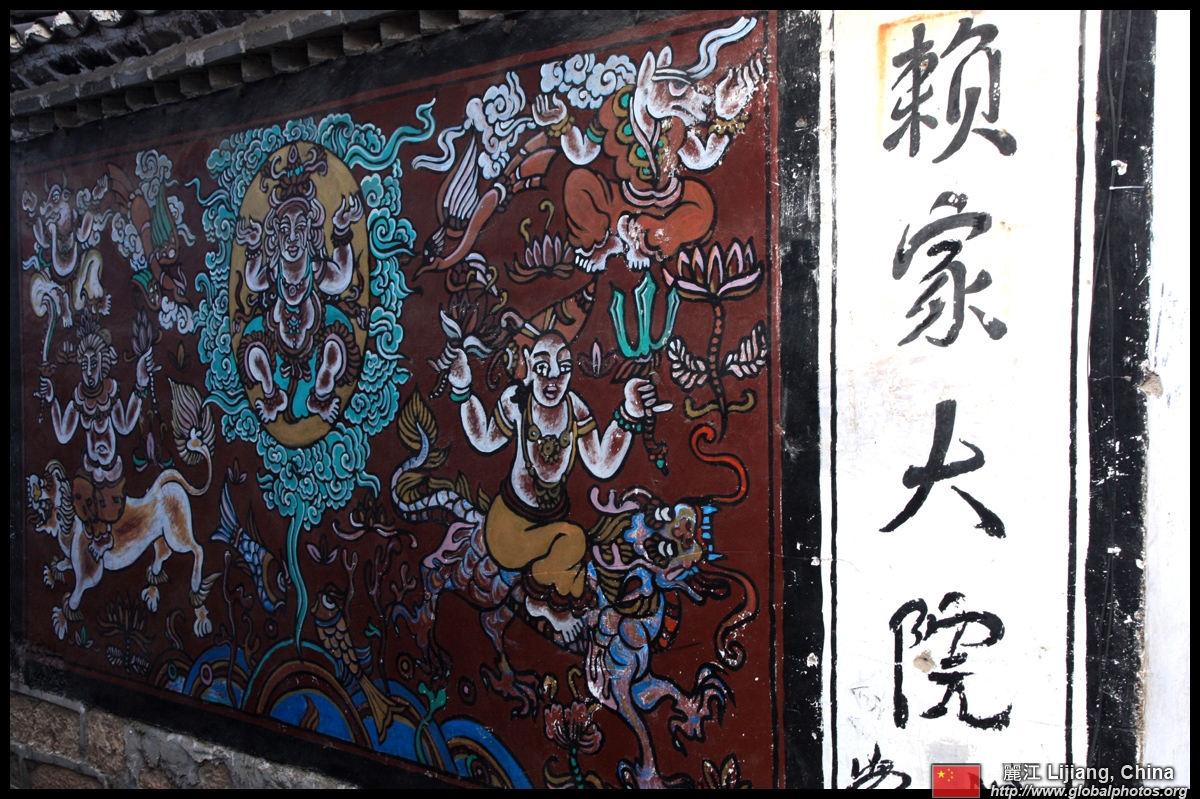 赖家大院
麗江 Lijiang, China
http://www.globalphotos.org